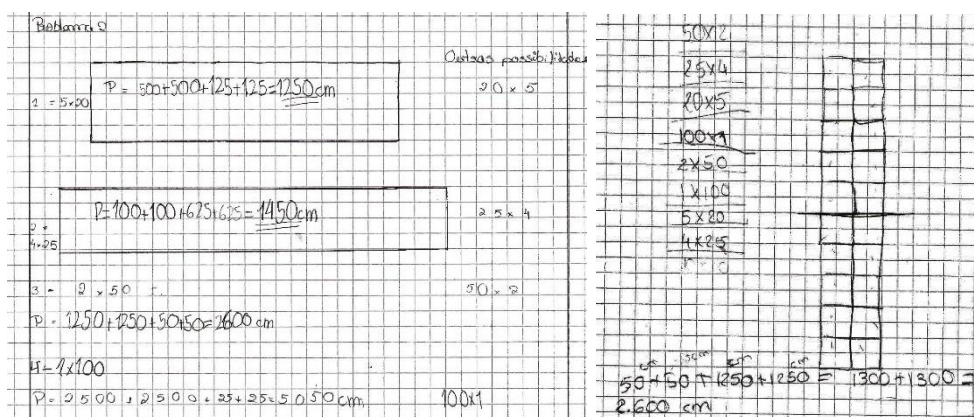 Problema 2
Outras possibilidades
P = 500+500+125+125=1250cm
20 x 5
1 = 5x20
P=100+100+625+625=1450cm
25 x 4
2 =
4x25
3 - 2 x 50
50 x 2
P = 1250+1250+50+50=2600 cm
4- 1x100
P= 2500+2500+25+25=5050 cm
100x1
50x2
25x4
20x5
100x1
2x50
1x100
5x20
4x25
cm 5cm cm cm
50+50+1250+1250= 1300+1300=
2.600 cm